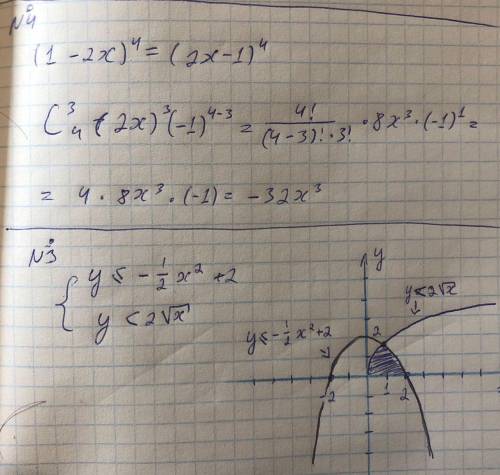 №4
(1 - 2x)⁴ = (2x - 1)⁴
C³₄ (2x)³(-1)⁴⁻³ = 4!/((4-3)!·3!) · 8x³·(-1)¹ =
= 4 · 8x³ · (-1) = -32x³
№3
{ y ≤ -1/2 x² + 2
y < 2√x
y
y<2√x
y≤-1/2x²+2
2
-2 1 2